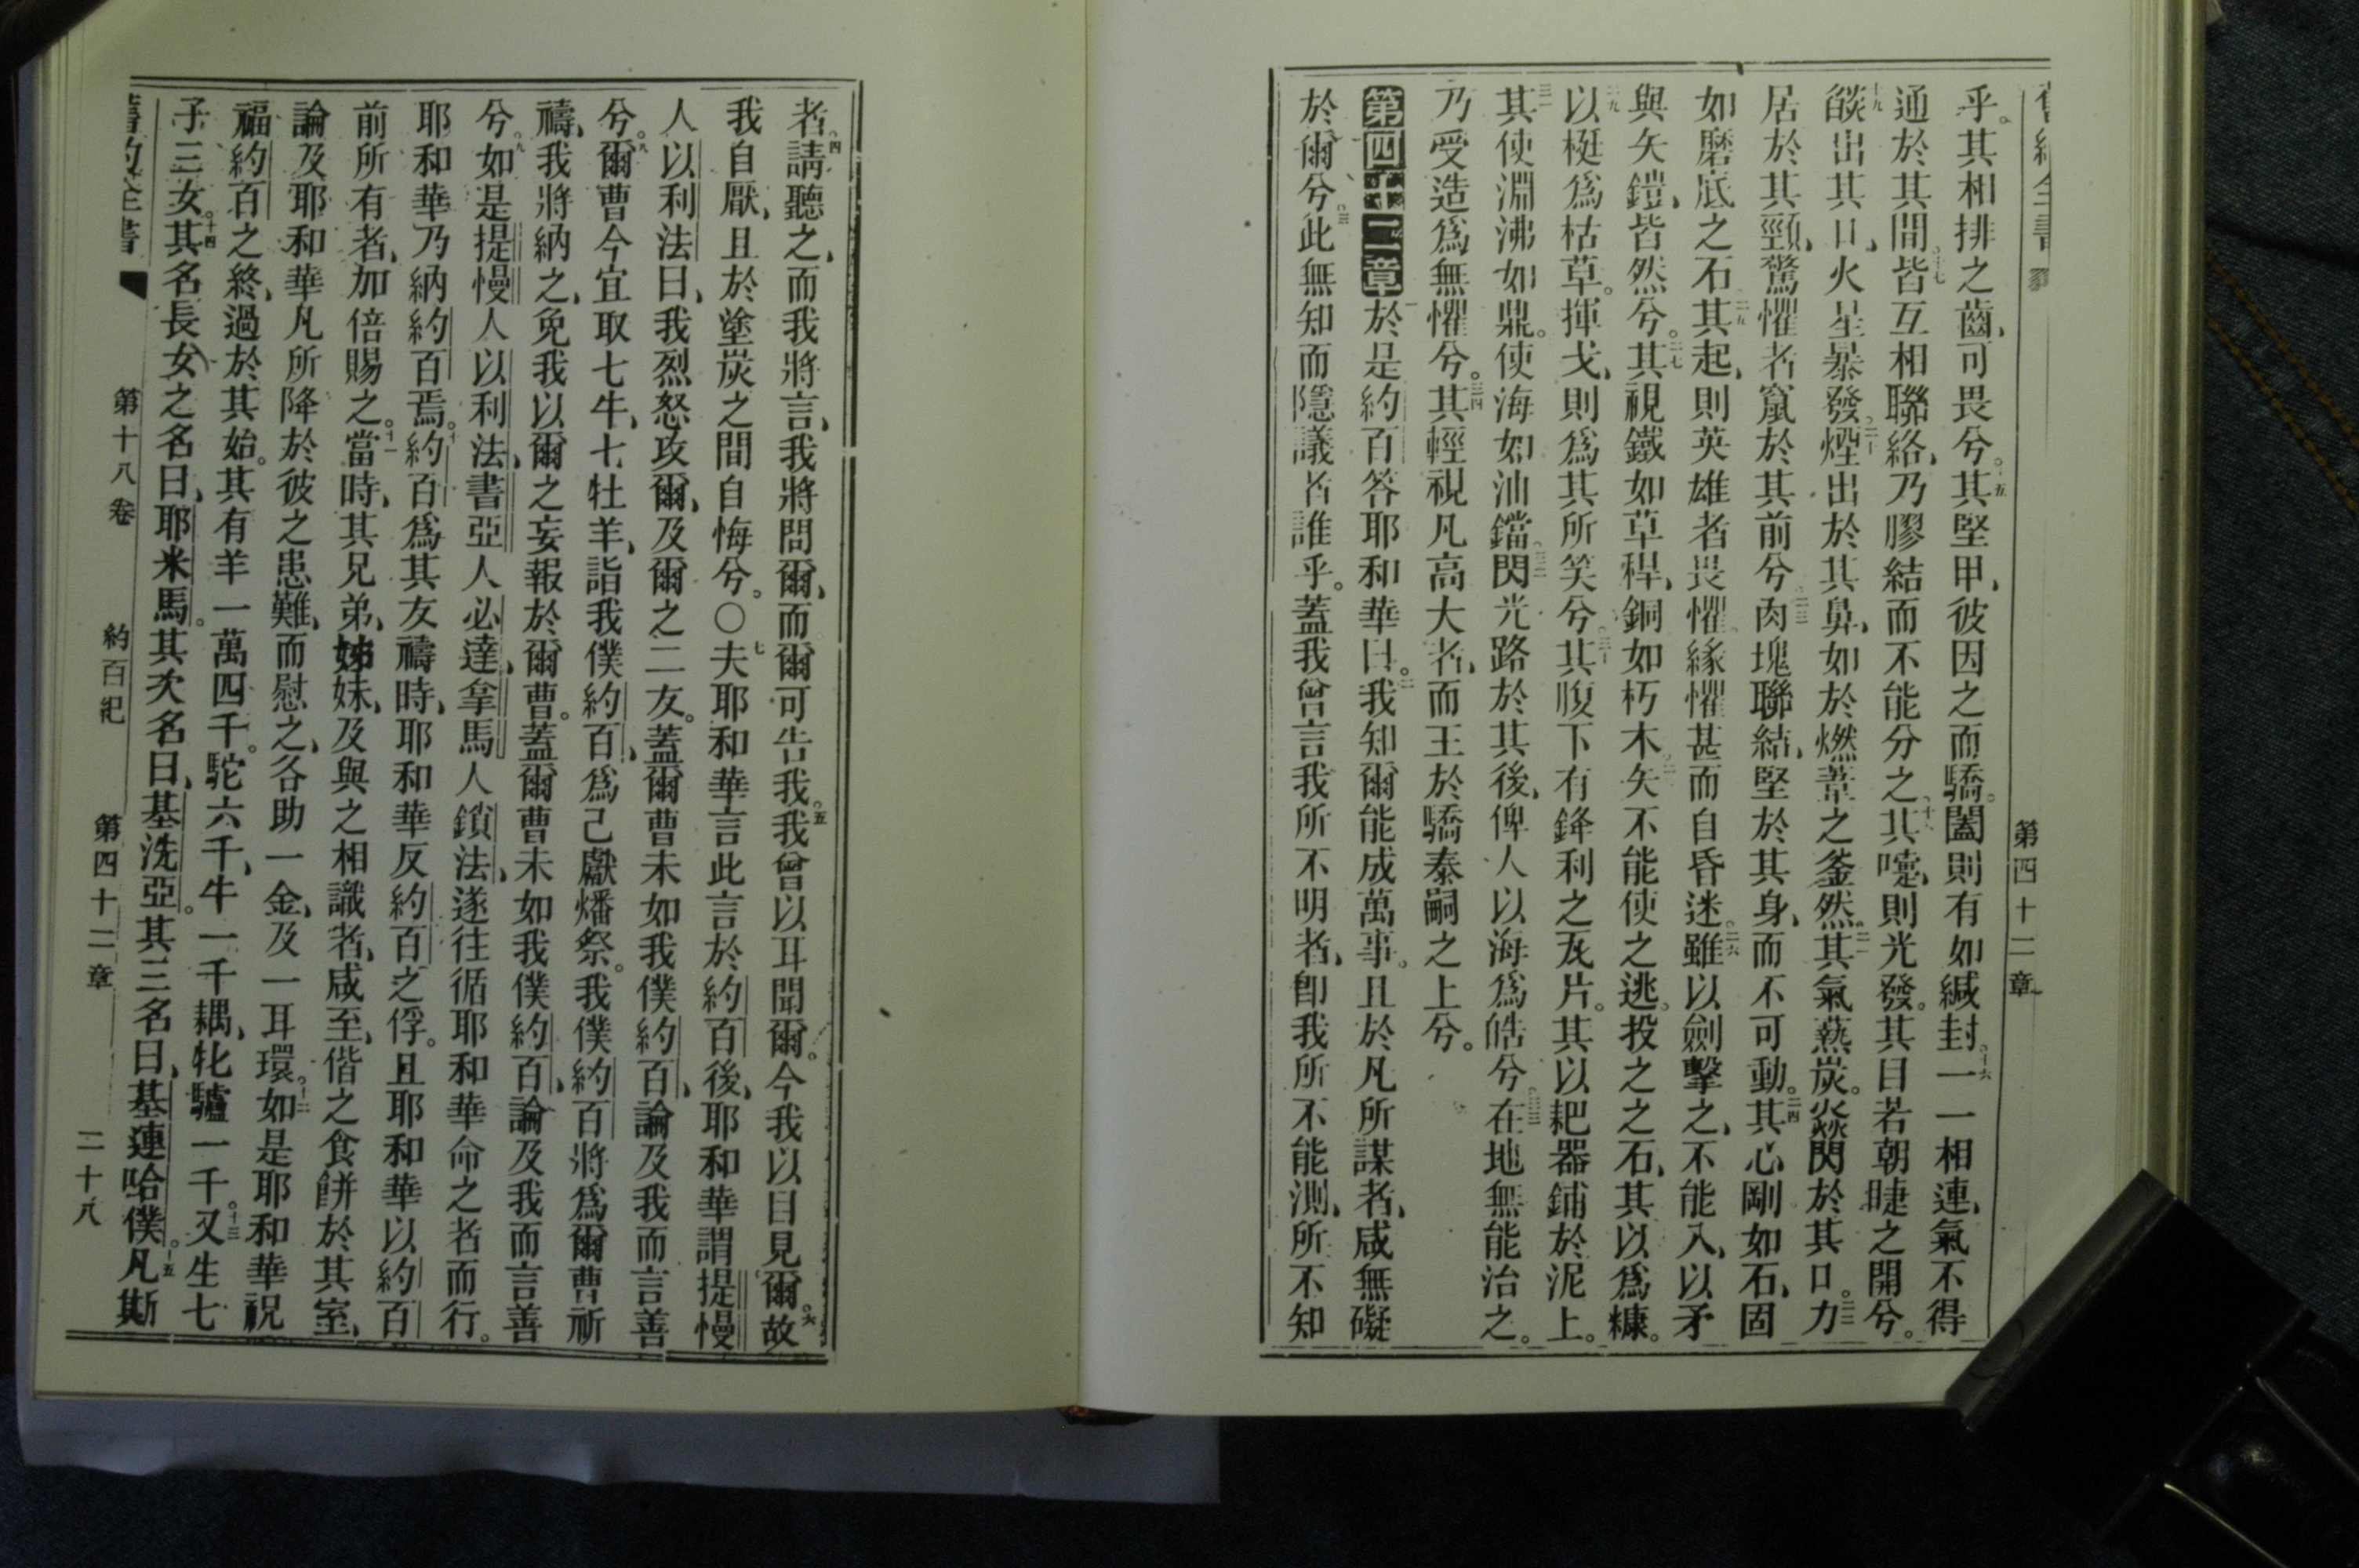 第四十二章
乎。其相排之齒、可畏兮。十五其堅甲、彼因之而驕。闔則有如緘封。十六一一相連、氣不得
通於其間。十七皆互相聯絡、乃膠結而不能分之。十八其嚏、則光發。其目若朝睫之開兮。
十九燄出其口、火星暴發。二十煙出於其鼻、如於燃葦之釜然。二一其氣爇炭。焱閃於其口。二二力
居於其頸、驚懼者竄於其前兮。二三肉塊聯結、堅於其身、而不可動。二四其心剛如石、固
如磨底之石。二五其起、則英雄者畏懼。緣懼甚而自昏迷。二六雖以劍擊之、不能入、以矛
與矢鎧、皆然兮。二七其視鐵如草稈、銅如朽木。二八矢不能使之逃。投之之石、其以爲糠。
二九以梃爲枯草。揮戈、則爲其所笑兮。三十其腹下有鋒利之瓦片。其以耙器鋪於泥上。
三一其使淵沸如鼎。使海如油鐺。三二閃光路於其後、俾人以海爲皓兮。三三在地無能治之。
乃受造爲無懼兮。三四其輕視凡高大者、而王於驕泰嗣之上兮。
第四十二章一於是約百答耶和華曰。二我知爾能成萬事。且於凡所謀者、咸無礙
於爾兮。三此無知而隱議者誰乎。蓋我曾言我所不明者、卽我所不能測、所不知
者。四請聽之、而我將言、我將問爾、而爾可告我。五我曾以耳聞爾。今我以目見爾。六故
我自厭、且於塗炭之間自悔兮。○七夫耶和華言此言於約百後、耶和華謂提慢
人以利法曰、我烈怒攻爾、及爾之二友。蓋爾曹未如我僕約百、論及我而言善
兮。八爾曹今宜取七牛、七牡羊、詣我僕約百、爲己獻燔祭。我僕約百將爲爾曹祈
禱、我將納之、免我以爾之妄報於爾曹。蓋爾曹未如我僕約百、論及我而言善
兮。九如是提慢人以利法、書亞人必達、拿馬人鎖法、遂往循耶和華命之者而行。
耶和華乃納約百焉。十約百爲其友禱時、耶和華反約百之俘。且耶和華以約百
前所有者、加倍賜之。十一當時、其兄弟、姊妹、及與之相識者、咸至、偕之食餅於其室、
論及耶和華凡所降於彼之患難、而慰之、各助一金、及一耳環。十二如是耶和華祝
福約百之終、過於其始。其有羊一萬四千。駝六千、牛一千耦、牝驢一千。十三又生七
子三女。十四其名長女之名曰、耶米馬。其次名曰、基洗亞。其三名曰、基連哈僕。十五凡斯
第十八卷 約百紀 第四十二章 二十八